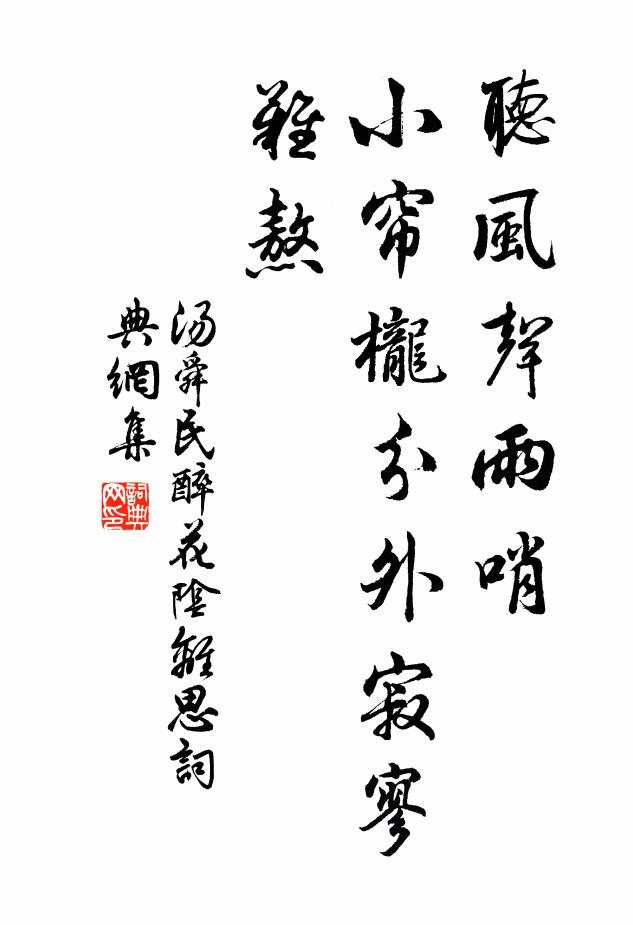 聽風聲雨哨
小帘櫳分外寂寥
難熬
湯舜民醉花陰離思詞
典網集
詞典網印